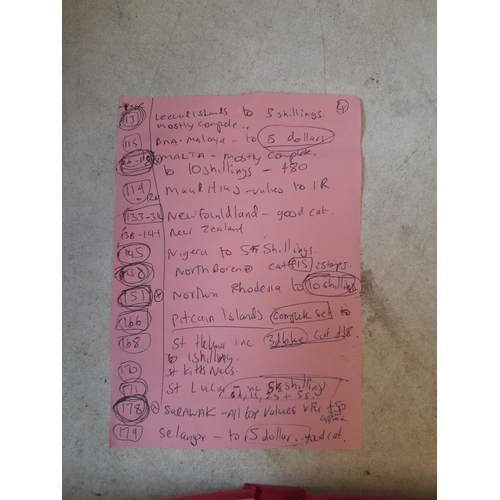 4
113 Leeward Islands to 5 shillings.
mostly complete..
115 BMA-Malaya - to 5 dollars
MALTA - mostly complete.
to 10 shillings - £80
119 Mauritius - values to 1R
-120
133-34 Newfoundland - good cat.
138-141 New Zealand
145 Nigeria to 5 shillings.
148 North Borneo cat £15 2 stamps.
151 Northern Rhodesia to 10 shillings
166 Pitcairn Islands complete set to
168 St Helena inc 3d blue cat £18.
to 1 shilling.
170 St Kitts Nevis.
171 St Lucia - inc 5 shilling
178 SARAWAK - All top values vfu £50
approx
179 Selangor - to 5 dollar. good cat.